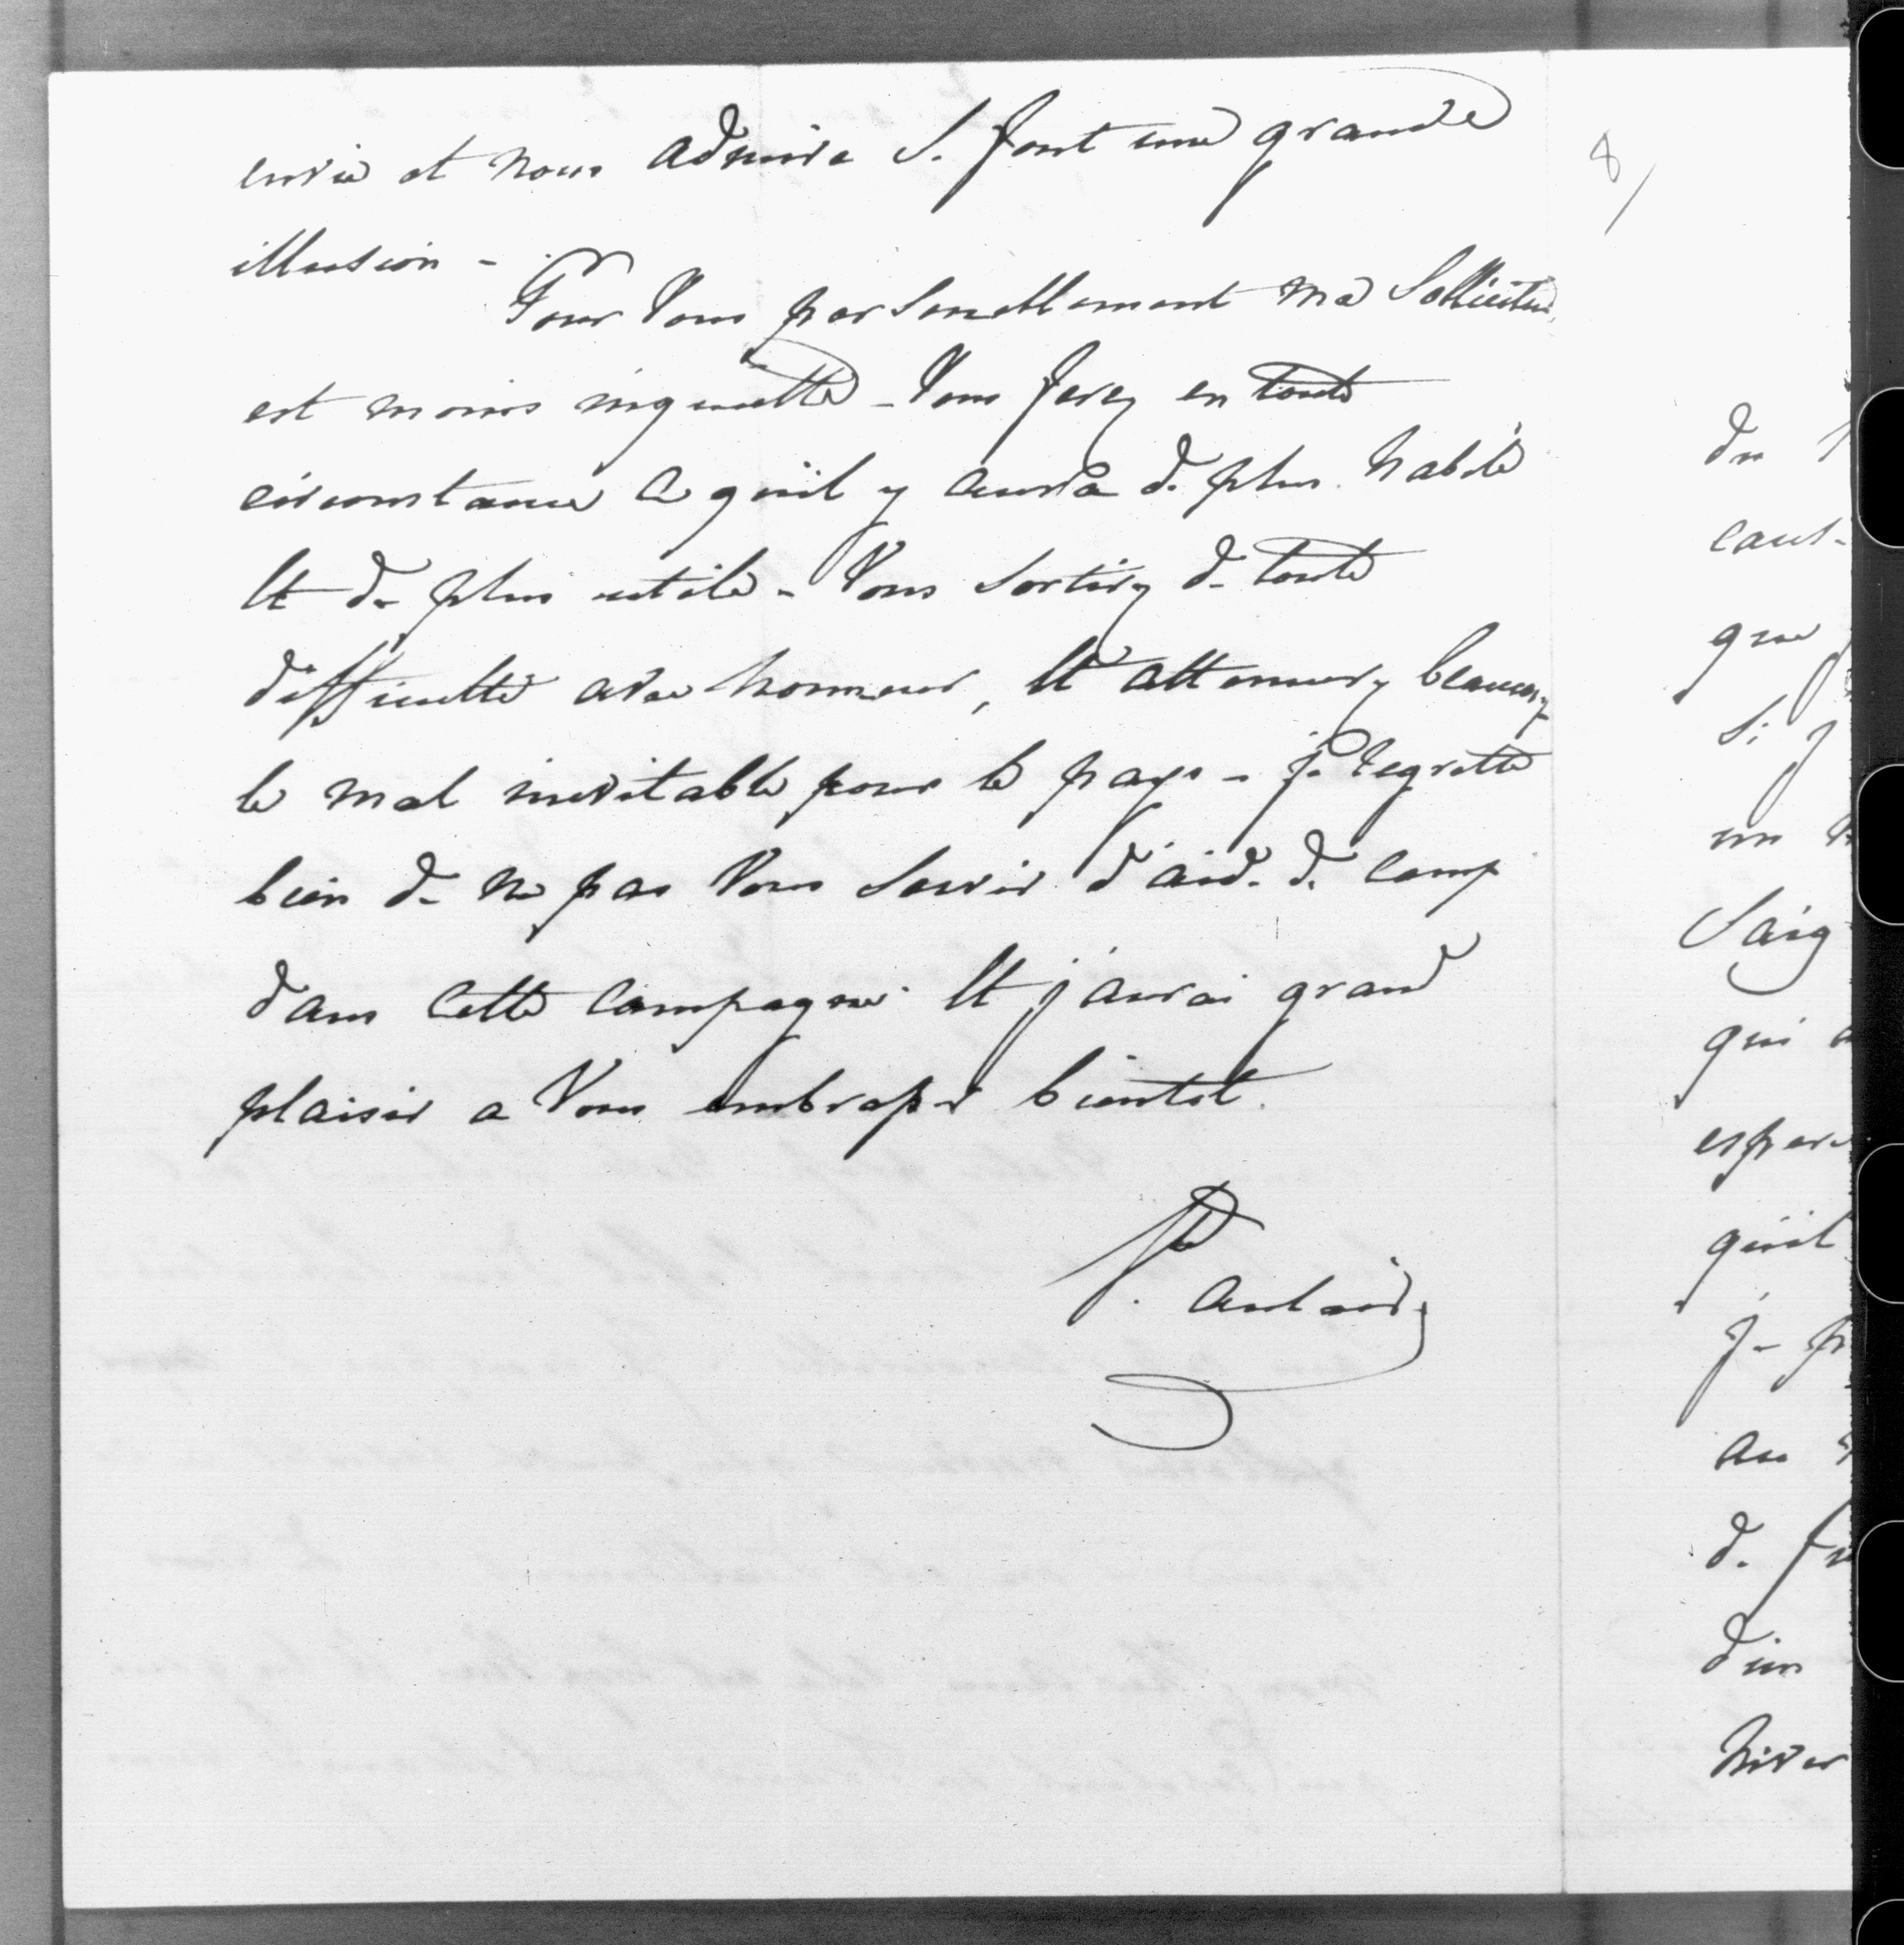 envie et nous admire se font une grande
illusion -
Pour vous personellement ma sollicitude
est moins inquiette - Vous ferez en toute
circonstance ce qu'il y aura de plus habile
et de plus utile - Vous sortirez de toute
difficulté avec honneur, et attenuerez beaucoup
le mal inevitable pour le pays - je regrette
bien de ne pas vous servir d'aide de camp
dans cette campagne et j'aurai grand
plaisir a vous embrasser bientot.
Ste aulaire
8/
du
caus-
que
si j
un
Saig
qui
esper
qu'il
je p
au
de fr
d'un
hiver